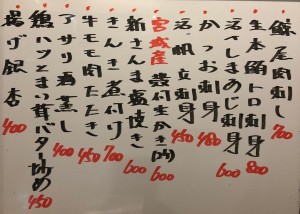 鯨尾肉刺し 700
生本鮪トロ刺身 800
活〆しまあじ刺身 600
かつお刺身 480
活帆立刺身 450
宮城産 殻付生かき(2ケ) 600
新さんま塩焼き 600
きんき煮付け 700
牛モモ肉たたき 450
アサリ酒蒸し 400
鶏ハツとまい茸バター炒め 450
揚げ銀杏 400